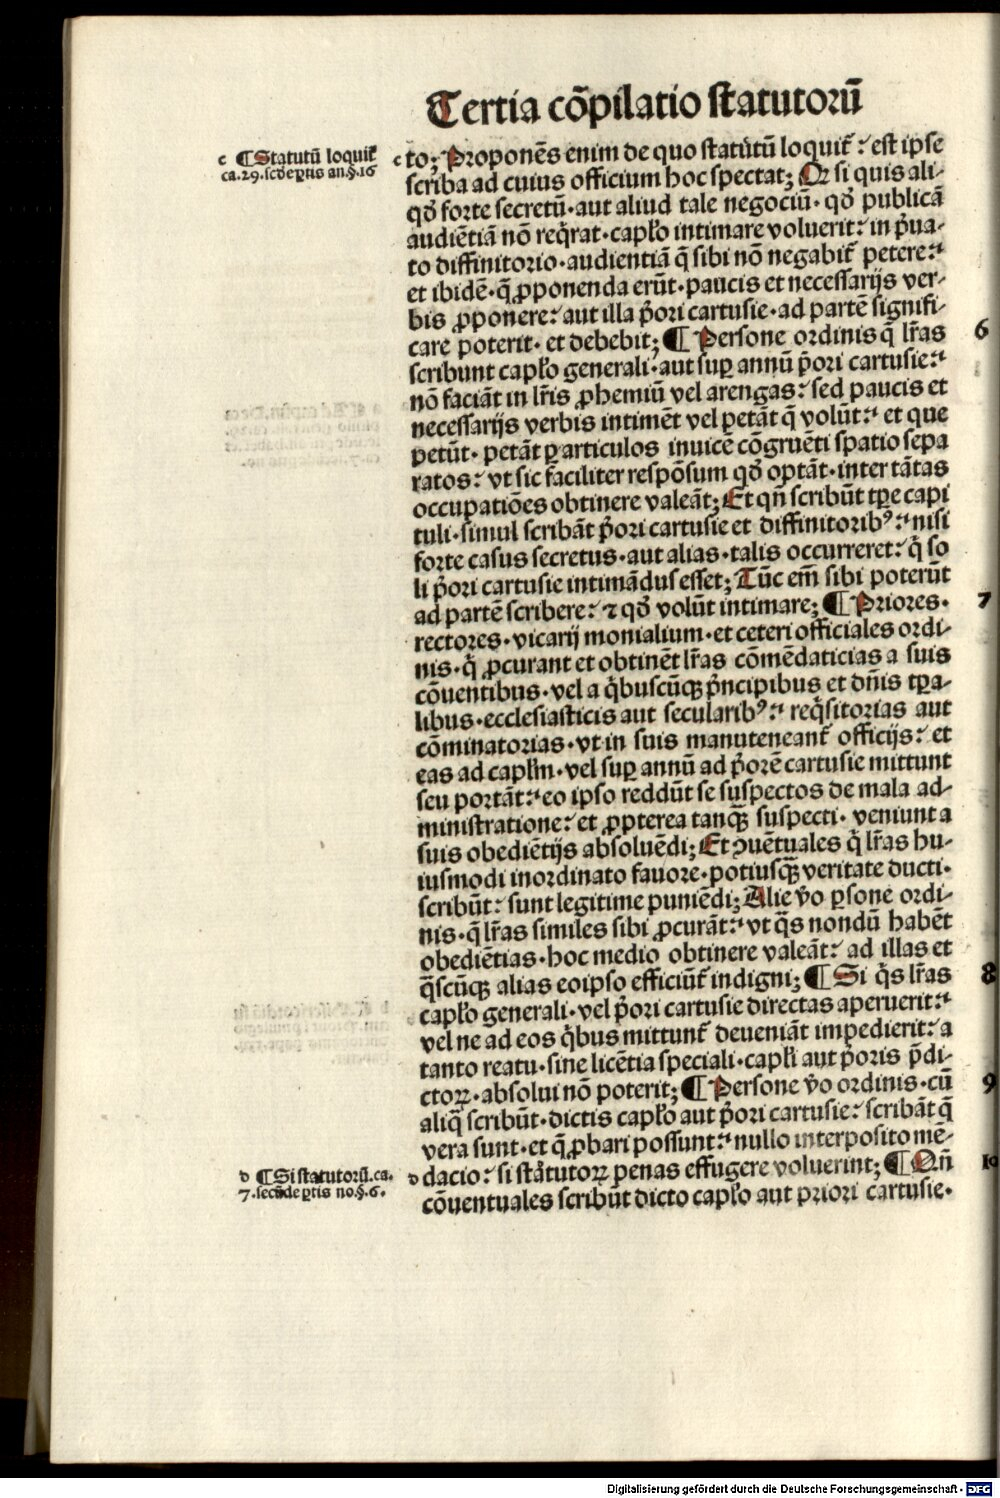 Tertia cōpilatio statutorū
c ¶ Statutū loquit̄
ca.29.scde ꝑtis an.§.16
c to; Proponēs enim de quo statutū loquit̄: est ipse
scriba ad cuius officium hoc spectat; Qꝛ si quis ali-
qd̄ forte secretū·aut aliud tale negociū·qd̄ publicā
audiētiā nō req̄rat·capl̄o intimare voluerit: in p̄ua-
to diffinitorio·audientiā q̄ sibi nō negabit̄ petere:
et ibidē·q̄ ꝓponenda erūt·paucis et necessarijs ver-
bis ꝓponere: aut illa p̄ori cartusie·ad partē signifi-
care poterit·et debebit; ¶ Persone ordinis q̄ lr̄as
6
scribunt capl̄o generali·aut suꝑ annū p̄ori cartusie:
nō faciāt in lr̄is ꝓhemiū vel arengas: sed paucis et
necessarijs verbis intimēt vel petāt q̄ volūt: et que
petūt·petāt ꝑ articulos inuicē cōgruēti spatio sepa
ratos: vt sic faciliter respōsum qd̄ optāt·inter tātas
occupatiōes obtinere valeāt; Et qn̄ scribūt tꝑe capi
tuli·simul scribāt p̄ori cartusie et diffinitoribꝰ: nisi
forte casus secretus·aut alias·talis occurreret: q̄ so
li p̄ori cartusie intimādus esset; Tūc em̄ sibi poterūt
ad partē scribere: ⁊ qd̄ volūt intimare; ¶ Priores·
7
rectores·vicarij monialium·et ceteri officiales ordi-
nis·q̄ ꝓcurant et obtinēt lr̄as cōmēdaticias a suis
cōuentibus·vel a q̄buscūqꝫ p̄ncipibus et dn̄is tꝑa-
libus·ecclesiasticis aut secularibꝰ: req̄sitorias aut
cōminatorias·vt in suis manuteneant̄ officijs: et
eas ad capl̄m·vel suꝑ annū ad p̄orē cartusie mittunt
seu portāt: eo ipso reddūt se suspectos de mala ad-
ministratione: et ꝓpterea tanqꝫ̄ suspecti·veniunt a
suis obediētijs absoluēdi; Et ꝯuētuales q̄ lr̄as hu-
iusmodi inordinato fauore·potiusqꝫ̄ veritate ducti·
scribūt: sunt legitime puniēdi; Alie v̄o ꝑsone ordi-
nis·q̄ lr̄as similes sibi ꝓcurāt: vt q̄s nondū habēt
obediētias·hoc medio obtinere valeāt: ad illas et
q̄scūqꝫ alias eoipso efficiūt̄ indigni; ¶ Si q̄s lr̄as
8
capl̄o generali·vel p̄ori cartusie directas aperuerit:
vel ne ad eos q̄bus mittunt̄ deueniāt impedierit: a
tanto reatu·sine licētia speciali·capl̄i aut p̄oris p̄di-
ctoꝝ·absolui nō poterit; ¶ Persone v̄o ordinis·cū
9
aliq̄ scribūt·dictis capl̄o aut p̄ori cartusie: scribāt q̄
vera sunt·et q̄ ꝓbari possunt: nullo interposito mē-
d ¶ Si statutorū.ca.
7.secūde ꝑtis no.§.6.
d dacio: si statutoꝝ penas effugere voluerint; ¶ Qn̄
10
cōuentuales scribūt dicto capl̄o aut priori cartusie·
Digitalisierung gefördert durch die Deutsche Forschungsgemeinschaft - DFG